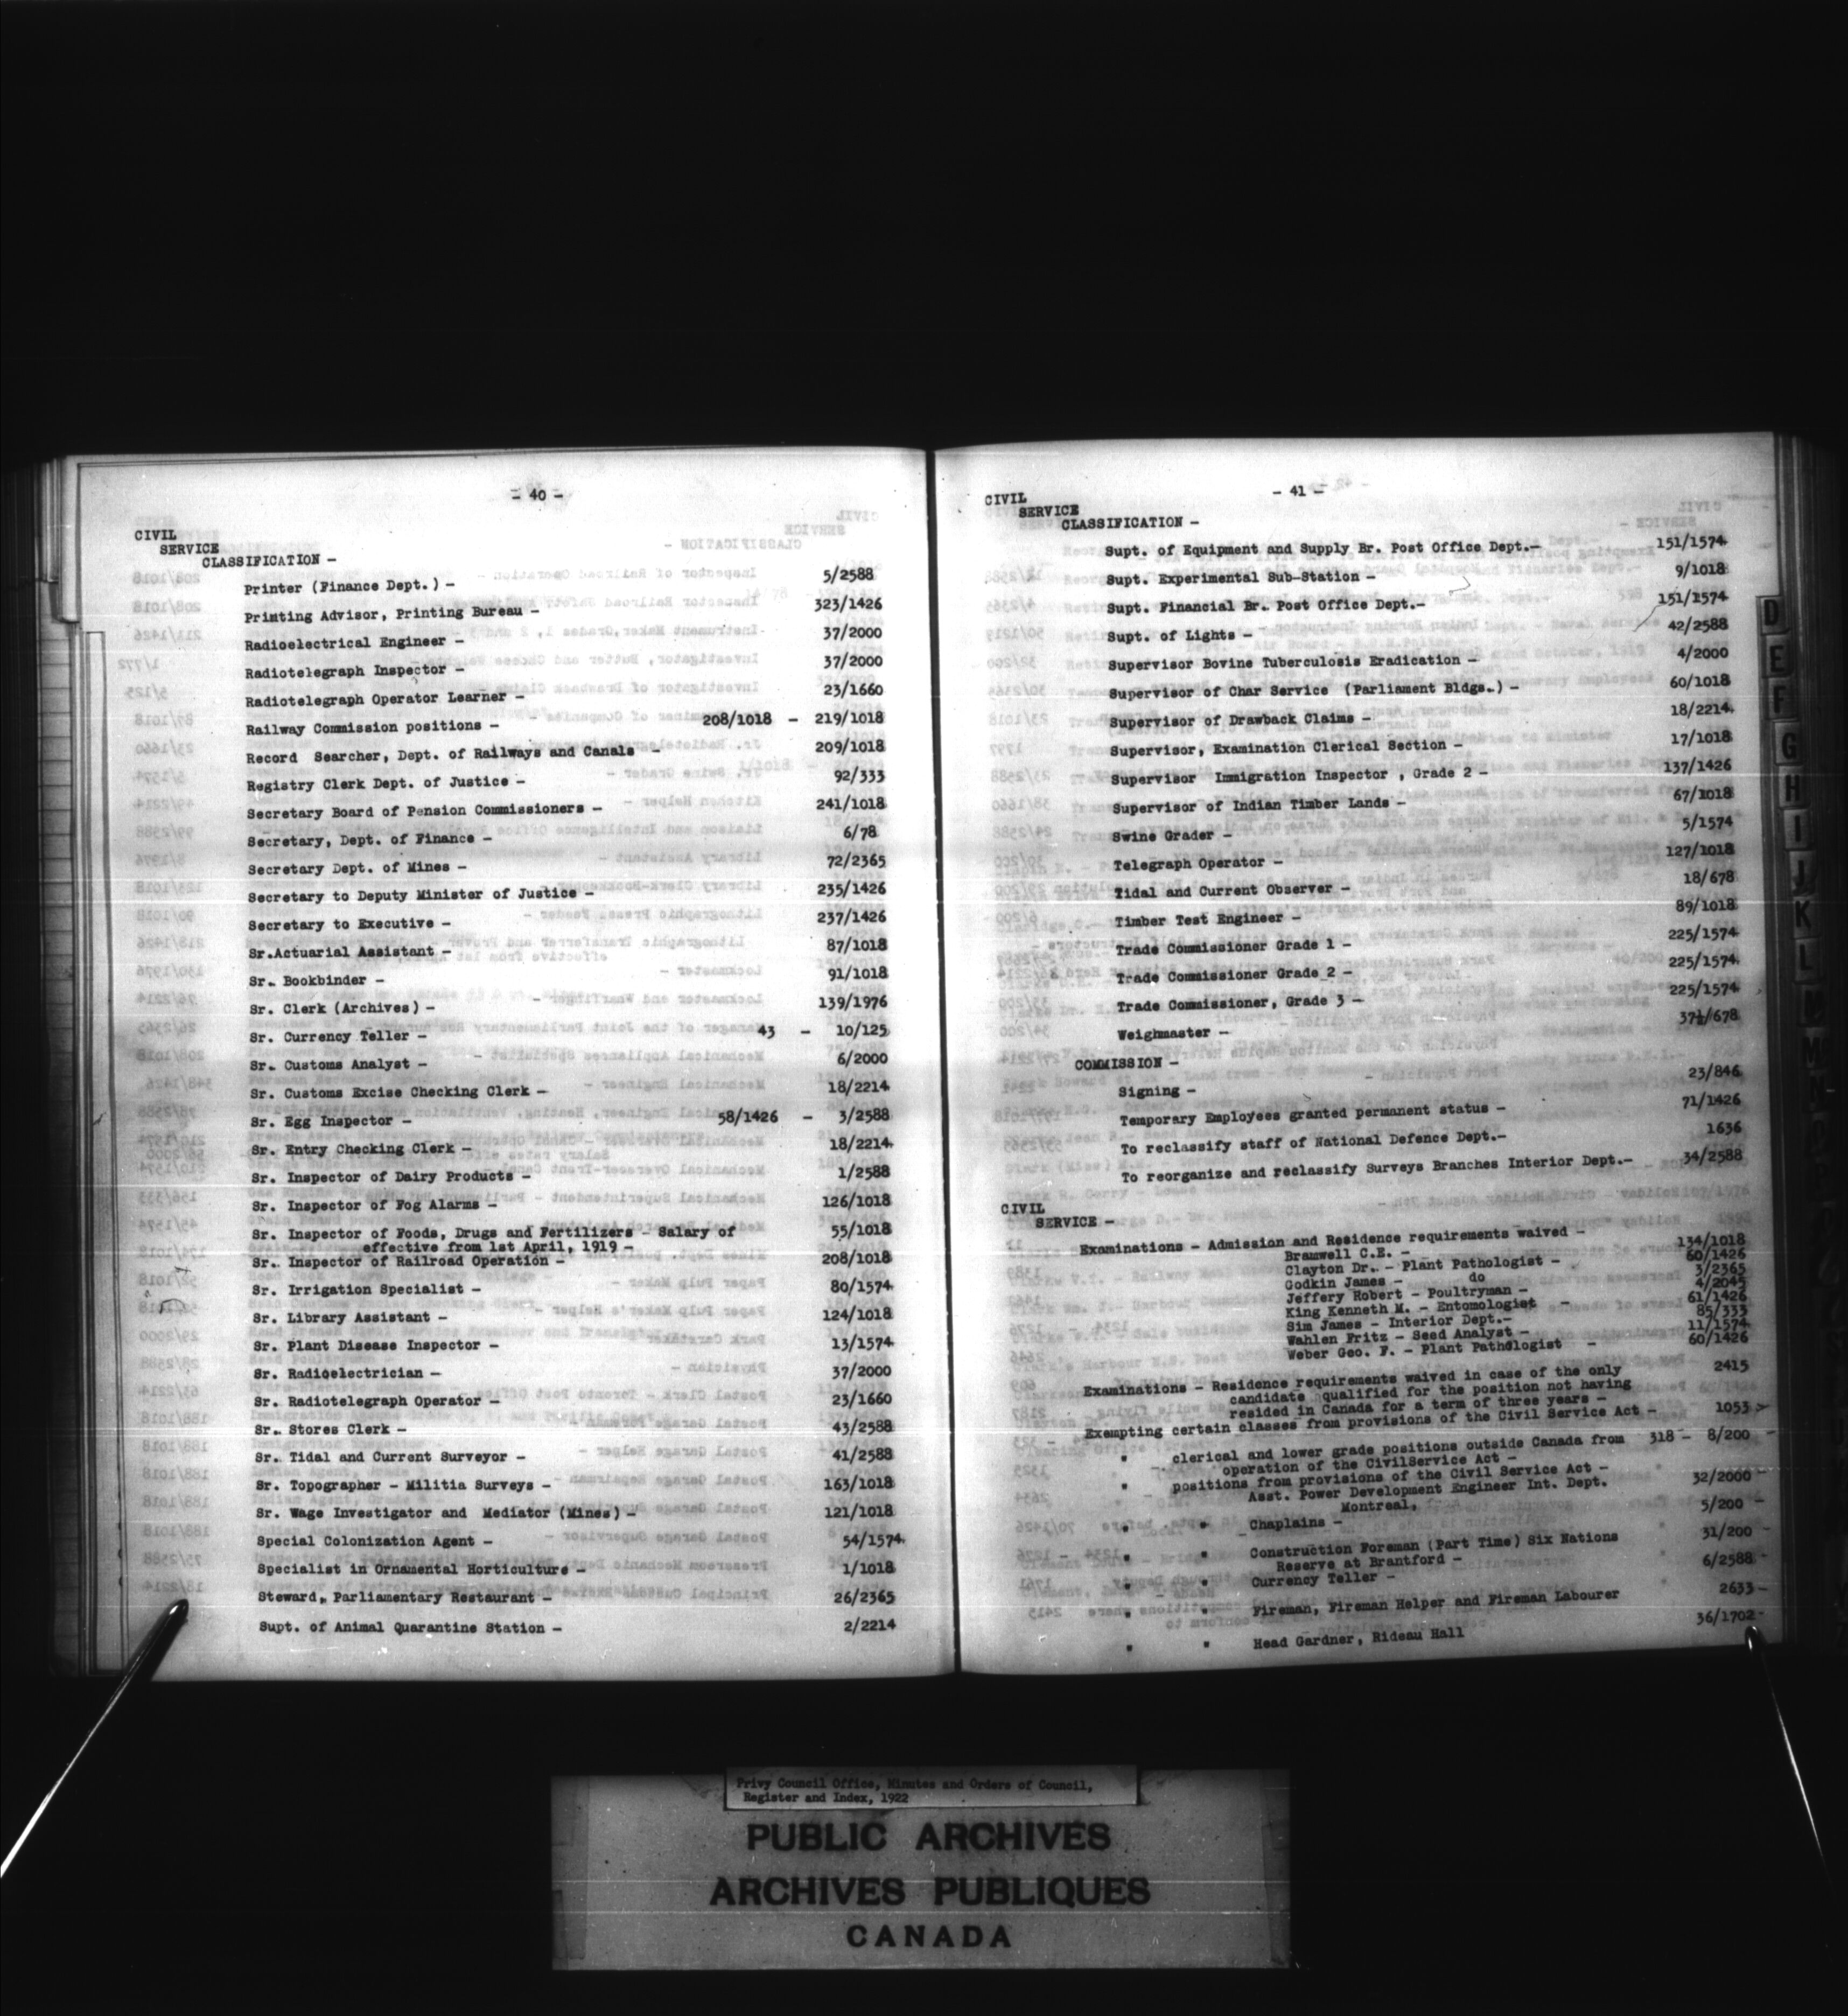 - 40 -
CIVIL
SERVICE
CLASSIFICATION -
Printer (Finance Dept.) - 5/2588
Printing Advisor, Printing Bureau - 323/1426
Radioelectrical Engineer - 37/2000
Radiotelegraph Inspector - 37/2000
Radiotelegraph Operator Learner - 23/1660
Railway Commission positions - 208/1018 - 219/1018
Record Searcher, Dept. of Railways and Canals - 209/1018
Registry Clerk Dept. of Justice - 92/333
Secretary Board of Pension Commissioners - 241/1018
Secretary, Dept. of Finance - 6/78
Secretary Dept. of Mines - 72/2365
Secretary to Deputy Minister of Justice - 235/1426
Secretary to Executive - 237/1426
Sr.Actuarial Assistant - 87/1018
Sr. Bookbinder - 91/1018
Sr. Clerk (Archives) - 139/1976
Sr. Currency Teller - 43 - 10/125
Sr. Customs Analyst - 6/2000
Sr. Customs Excise Checking Clerk - 18/2214
Sr. Egg Inspector - 58/1426 - 3/2588
Sr. Entry Checking Clerk - 18/2214
Sr. Inspector of Dairy Products - 1/2588
Sr. Inspector of Fog Alarms - 126/1018
Sr. Inspector of Foods, Drugs and Fertilizers - Salary of 55/1018
effective from 1st April, 1919 -
Sr. Inspector of Railroad Operation - 208/1018
Sr. Irrigation Specialist - 80/1574
Sr. Library Assistant - 124/1018
Sr. Plant Disease Inspector - 13/1574
Sr. Radioelectrician - 37/2000
Sr. Radiotelegraph Operator - 23/1660
Sr. Stores Clerk - 43/2588
Sr. Tidal and Current Surveyor - 41/2588
Sr. Topographer - Militia Surveys - 163/1018
Sr. Wage Investigator and Mediator (Mines) - 121/1018
Special Colonization Agent - 54/1574
Specialist in Ornamental Horticulture - 1/1018
Steward, Parliamentary Restaurant - 26/2365
Supt. of Animal Quarantine Station - 2/2214
- 41 -
CIVIL
SERVICE
CLASSIFICATION -
Supt. of Equipment and Supply Br. Post Office Dept.- 151/1574
Supt. Experimental Sub-Station - 9/1018
Supt. Financial Br. Post Office Dept.- 151/1574
Supt. of Lights - 42/2588
Supervisor Bovine Tuberculosis Eradication - 4/2000
Supervisor of Char Service (Parliament Bldgs.) - 60/1018
Supervisor of Drawback Claims - 18/2214
Supervisor, Examination Clerical Section - 17/1018
Supervisor Immigration Inspector , Grade 2 - 137/1426
Supervisor of Indian Timber Lands - 67/1018
Swine Grader - 5/1574
Telegraph Operator - 127/1018
Tidal and Current Observer - 18/678
Timber Test Engineer - 89/1018
Trade Commissioner Grade 1 - 225/1574
Trade Commissioner Grade 2 - 225/1574
Trade Commissioner, Grade 3 - 225/1574
Weighmaster - 37½/678
COMMISSION -
Signing - 23/846
Temporary Employees granted permanent status - 71/1426
To reclassify staff of National Defence Dept.- 1636
To reorganize and reclassify Surveys Branches Interior Dept.- 34/2588
CIVIL
SERVICE -
Examinations - Admission and Residence requirements waived - 134/1018
Bramwell C.E. - 60/1426
Clayton Dr. - Plant Pathologist - 3/2365
Godkin James - do 4/2045
Jeffery Robert - Poultryman - 61/1426
King Kenneth M. - Entomologist - 85/333
Sim James - Interior Dept.- 11/1574
Wahlen Fritz - Seed Analyst - 60/1426
Weber Geo. F. - Plant Pathologist -
Examinations - Residence requirements waived in case of the only 2415
candidate qualified for the position not having
resided in Canada for a term of three years -
Exempting certain classes from provisions of the Civil Service Act - 1053
" clerical and lower grade positions outside Canada from 318 - 8/200
operation of the CivilService Act -
" positions from provisions of the Civil Service Act -
Asst. Power Development Engineer Int. Dept. 32/2000 -
Montreal,
" " Chaplains - 5/200 -
" " Construction Foreman (Part Time) Six Nations 31/200 -
Reserve at Brantford -
" " Currency Teller - 6/2588 -
" " Fireman, Fireman Helper and Fireman Labourer 2633 -
" " Head Gardner, Rideau Hall 36/1702 -
D
E
F
G
H
I
J
K
L
M
Privy Council Office, Minutes and Orders of Council,
Register and Index, 1922
PUBLIC ARCHIVES
ARCHIVES PUBLIQUES
CANADA